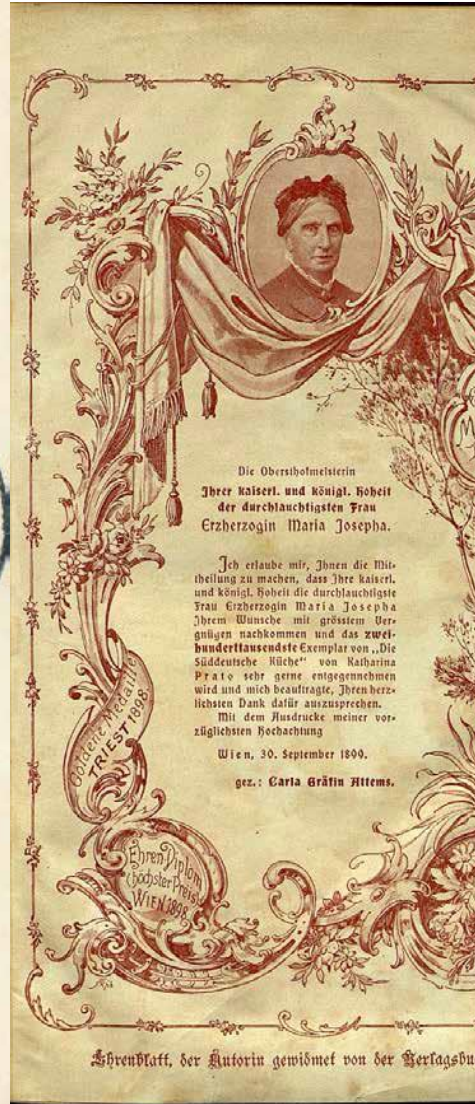 Die Obersthofmeisterin
Ihrer kaiserl. und königl. Hoheit
der durchlauchtigsten Frau
Erzherzogin Maria Josepha.
Ich erlaube mir, Ihnen die Mit-
theilung zu machen, dass Ihre kaiserl.
und königl. Hoheit die durchlauchtigste
Frau Erzherzogin Maria Josepha
Ihrem Wunsche mit grösstem Ver-
gnügen nachkommen und das zwei-
hunderttausendste Exemplar von „Die
Süddeutsche Küche“ von Katharina
Prato sehr gerne entgegennehmen
wird und mich beauftragte, Ihren herz-
lichsten Dank dafür auszusprechen.
Mit dem Ausdrucke meiner vor-
züglichsten Hochachtung
Wien, 30. September 1899.
gez.: Carla Gräfin Attems.
Goldene Medaille
TRIEST 1898.
Ehren-Diplom
(höchster Preis)
WIEN 1898.
Ehrenblatt, der Autorin gewidmet von der Verlagsbu